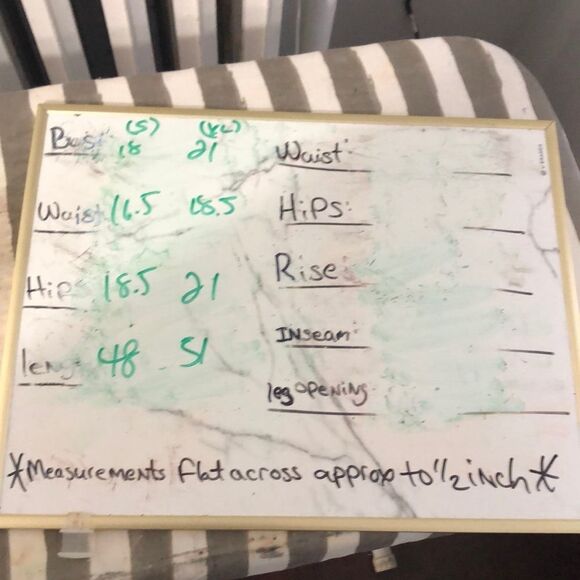 (S) (XL)
Bus 18 21
Waist 16.5 18.5
Hip 18.5 21
leng 48 51
Waist:
HiPS:
Rise
INseam:
leg OPENiNg
*Measurements flat across approx to 1/2 inch*